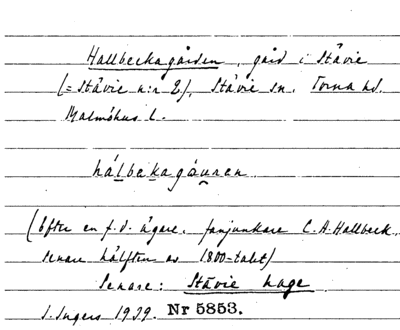 Hallbeckagården, gård i Stävie
(= Stävie n:r 2), Stävie sn. Torna hd.
Malmöhus l.
hálbekagáuren
(Efter en f.d. ägare, fanjunkare C.A. Hallbeck,
senare hälften av 1800-talet)
Senare: Stävie hage
I. Ingers 1939. Nr 5853.